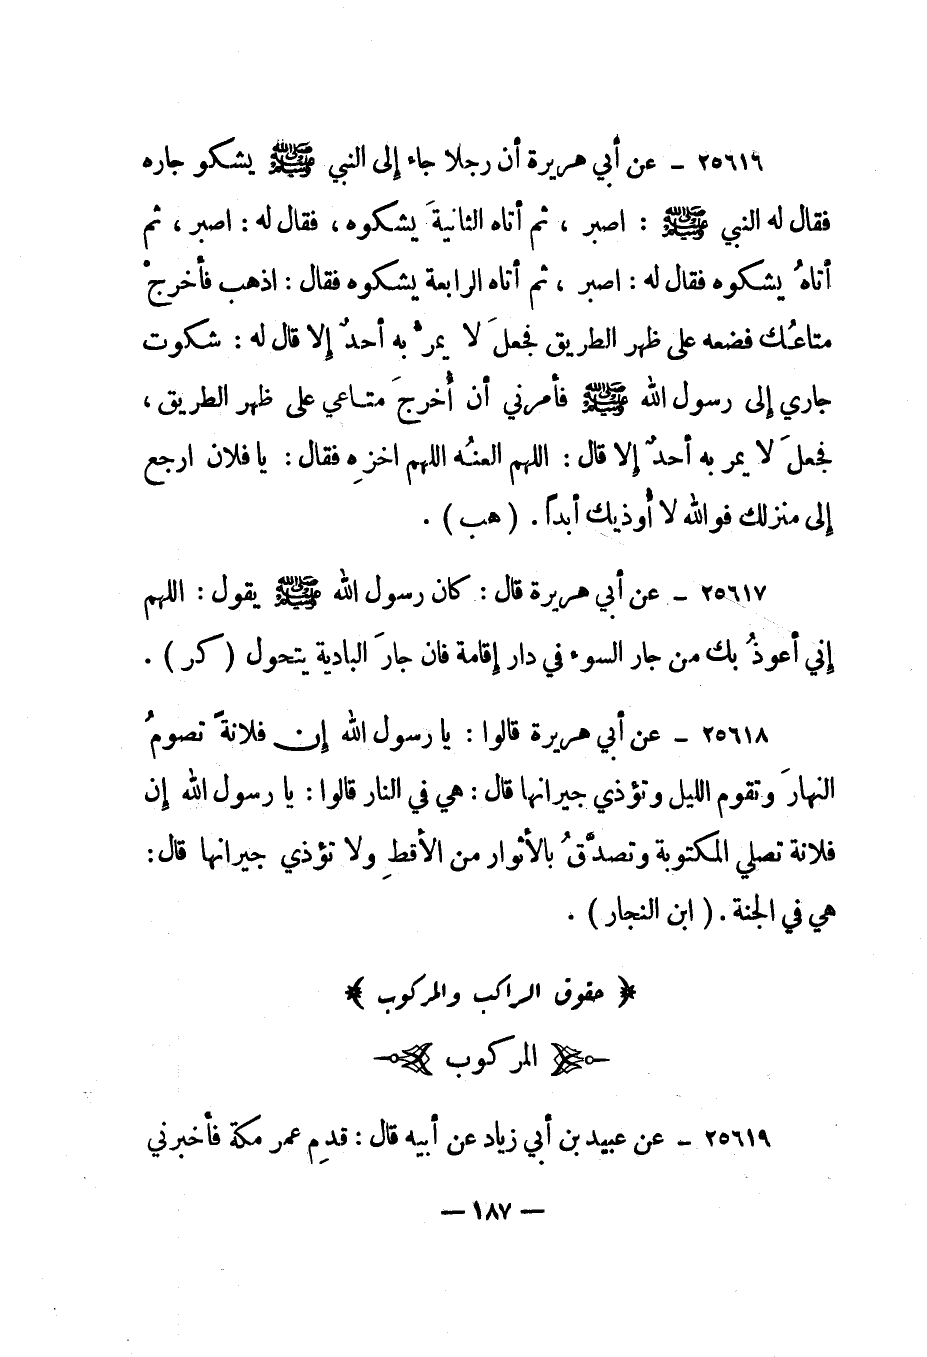 ٢٥٦١٩ - عن أبي هريرة أن رجلا جاء إلى النبي ﷺ يشكو جاره
فقال له النبي ﷺ : اصبر ، ثم أتاه الثانيةَ يشكوه ، فقال له : اصبر ، ثم
أتاهُ يشكوه فقال له : اصبر ، ثم أتاه الرابعة يشكوه فقال : اذهب فأخرجْ
متاعُك فضعه على ظهر الطريق فجعلَ لا يمرُّ به أحدٌ إلا قال له : شكوت
جاري إلى رسول الله ﷺ فأمرني أن أُخرجَ متاعي على ظهر الطريق ،
فجعلَ لا يمر به أحدٌ إلا قال : اللهم العنُه اللهم اخزِه فقال : يا فلان ارجع
إلى منزلك فوالله لا أُوذيك أبداً . ( هب ) .
٢٥٦١٧ - عن أبي هريرة قال : كان رسول الله ﷺ يقول : اللهم
إني أعوذُ بك من جار السوء في دار إقامة فان جارَ البادية يتحول ( كر ) .
٢٥٦١٨ - عن أبي هريرة قالوا : يا رسول الله إن فلانةً تصومُ
النهارَ وتقوم الليل وتؤذي جيرانها قال : هي في النار قالوا : يا رسول الله إن
فلانة تصلي المكتوبة وتصدَّقُ بالأثوار من الأقطِ ولا تؤذي جيرانها قال :
هي في الجنة . ( ابن النجار ) .
﴿ حقوق الراكب والمركوب ﴾
المركوب
٢٥٦١٩ - عن عبيد بن أبي زياد عن أبيه قال : قدِم عمر مكة فأخبرني
— ١٨٧ —